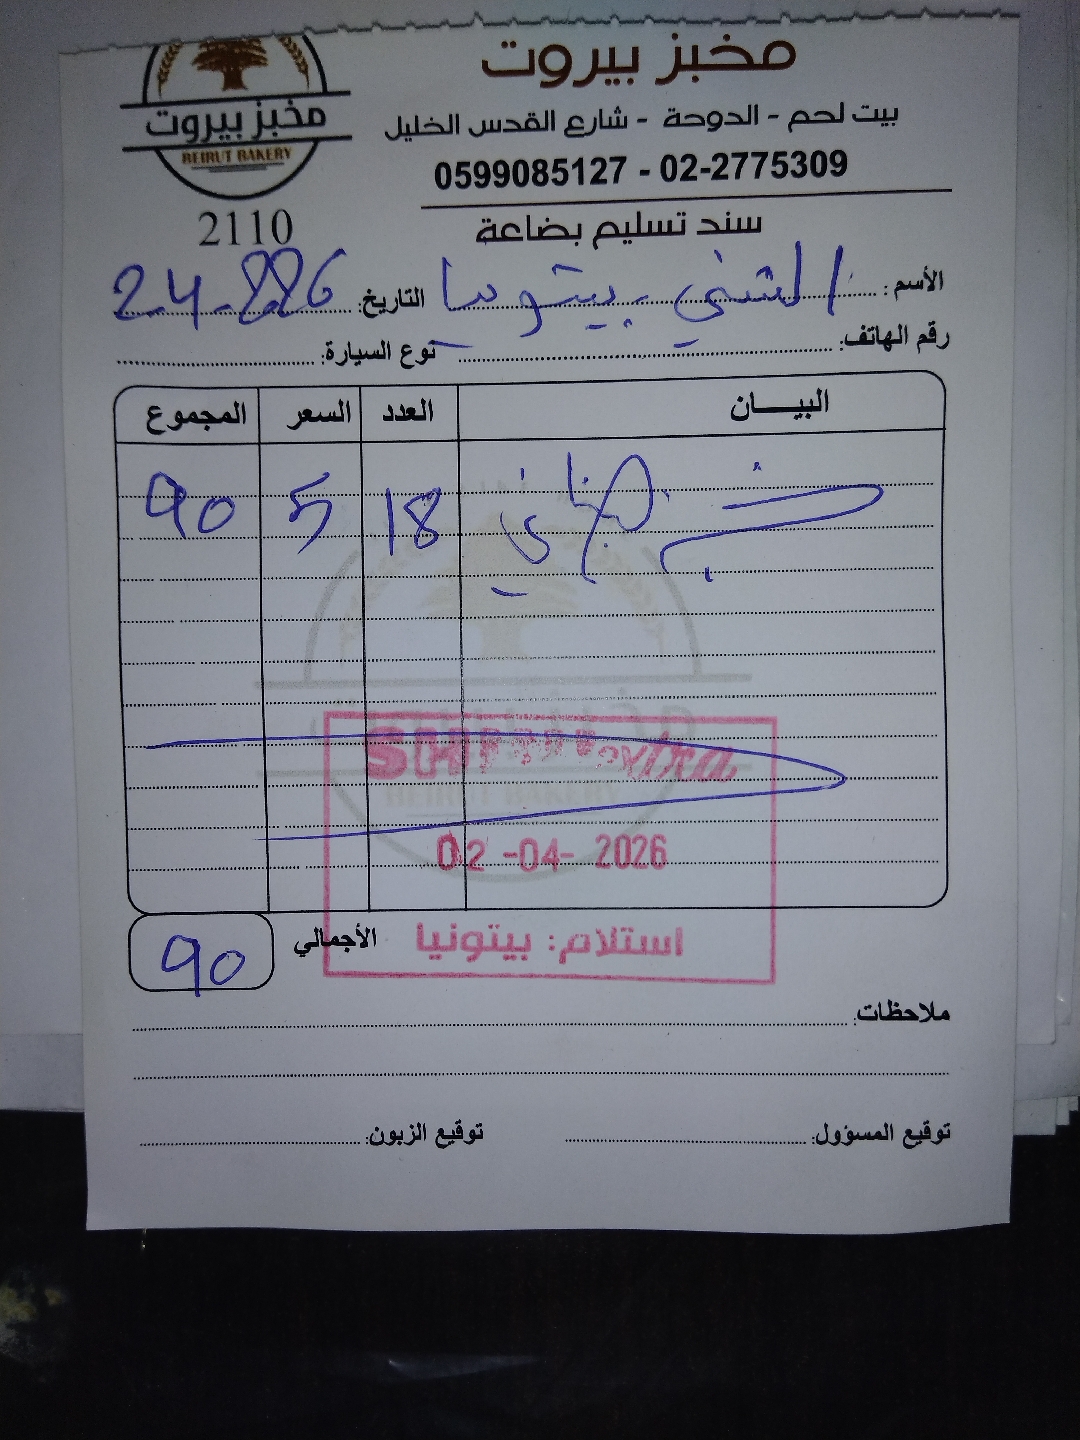 مخبز بيروت
مخبز بيروت
BEIRUT BAKERY
بيت لحم - الدوحة - شارع القدس الخليل
0599085127 - 02-2775309
2110
سند تسليم بضاعة
الأسم: الشني - بيتونيا التاريخ:
رقم الهاتف: نوع السيارة:
البيـــان العدد السعر المجموع
18 5 90
02 -04- 2026
استلام: بيتونيا
الأجمالي 90
ملاحظات:
توقيع المسؤول: توقيع الزبون: